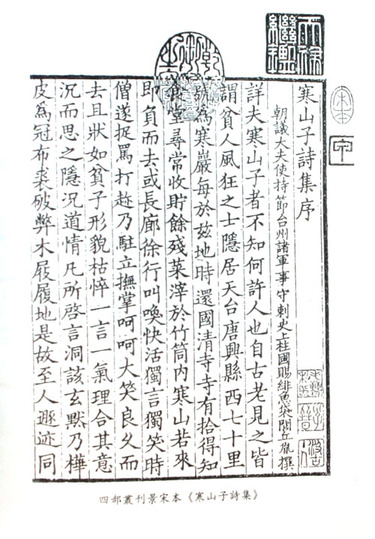 寒山子詩集序
朝議大夫使持節台州諸軍事守刺史上柱國賜緋魚袋閭丘胤撰
詳夫寒山子者不知何許人也自古老見之皆
謂貧人風狂之士隱居天台唐興縣西七十里
號為寒巖每於茲地時還國清寺寺有拾得知
食堂尋常收貯餘殘菜滓於竹筒內寒山若來
即負而去或長廊徐行叫喚快活獨言獨笑時
僧遂捉罵打趁乃駐立撫掌呵呵大笑良久而
去且狀如貧子形貌枯悴一言一氣理合其意
沉而思之隱況道情凡所啓言洞該玄默乃樺
皮為冠布裘破弊木屐履地是故至人遯迹同
四部叢刊景宋本《寒山子詩集》